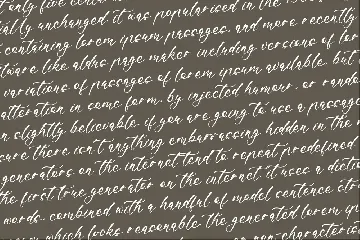 not only five centu
ially unchanged it was popularised in the
containing lorem ipsum passages, and more recently
tware like aldus page maker including versions of lor
variations of passages of lorem ipsum available, but
alteration in some form, by injected humour, or rando
n slightly believable. if you are going to use a passag
sure there isn't anything embarrassing hidden in the
generators on the internet tend to repeat predefined
the first true generator on the internet it uses a dicti
words, combined with a handful of model sentence str
which looks reasonable the generated lorem ip
non-characteris